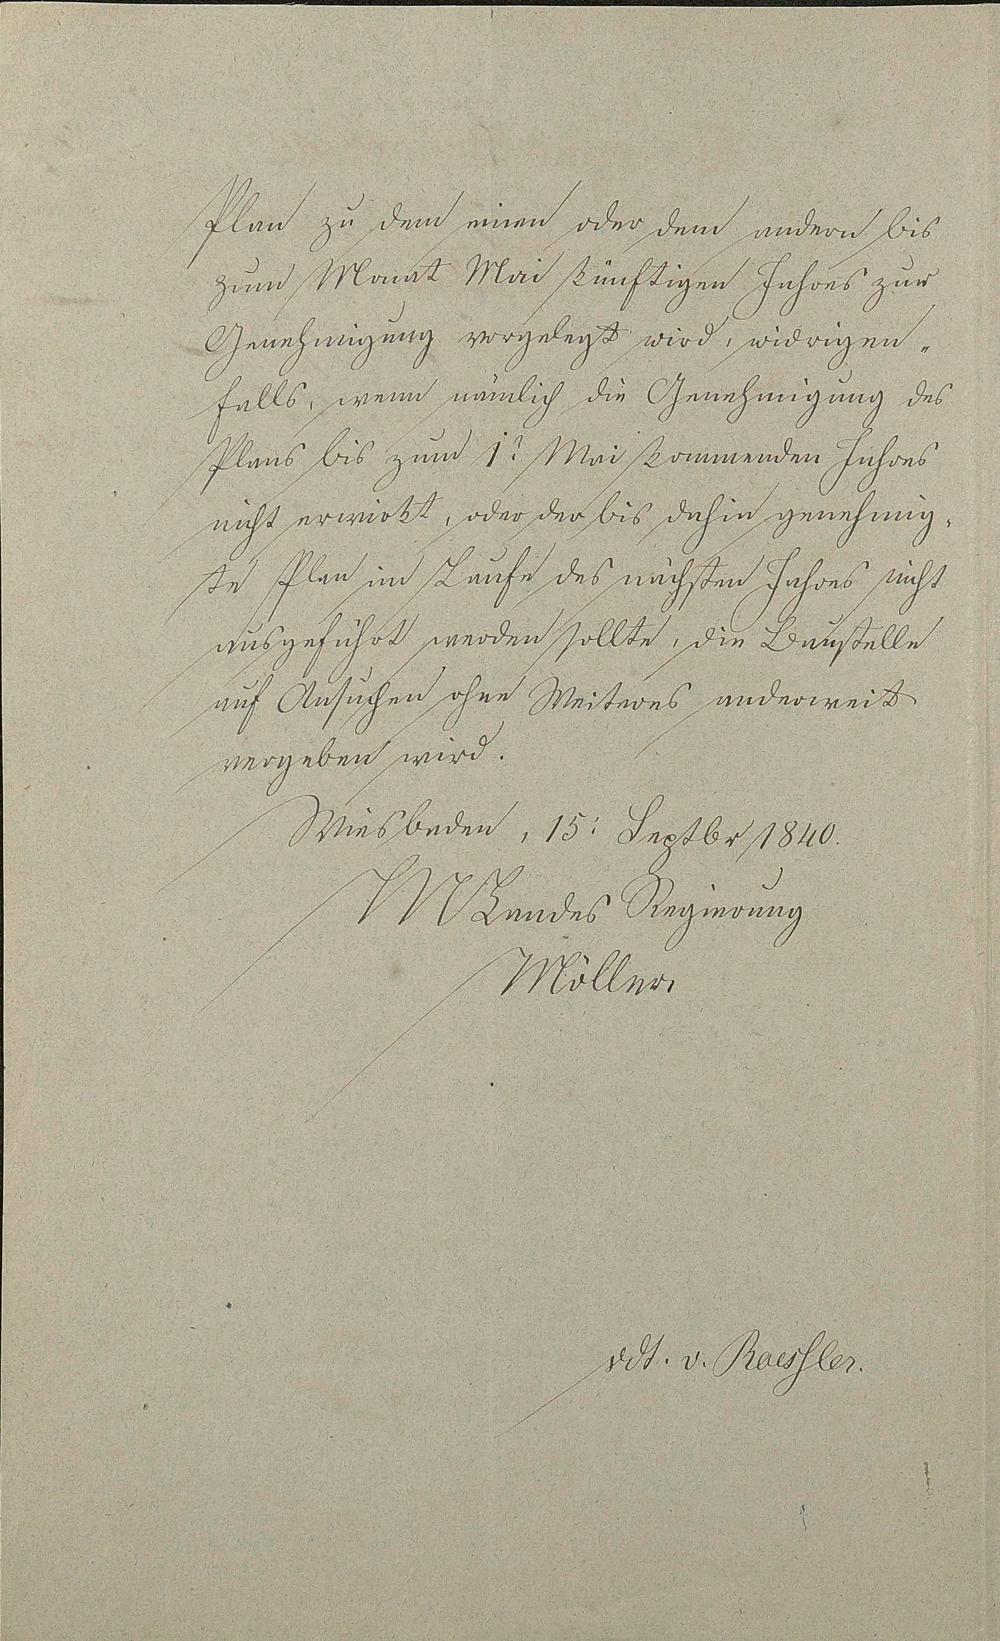 Plan zu dem einen oder dem andern bis
zum Monat Mai künftigen Jahres zur
Genehmigung vorgelegt wird, widrigen„
falls, wenn nämlich die Genehmigung des
Plans bis zum 1t Mai kommenden Jahres
nicht erwirkt, oder der bis dahin genehmig„
te Plan im Laufe des nächsten Jahres nicht
ausgeführt werden sollte, die Baustelle
auf Ansuchen ohne Weiteres anderweit
vergeben wird.
Wiesbaden, 15: Septbr 1840.
Landes Regierung
Möller.
vdt. v. Roessler.